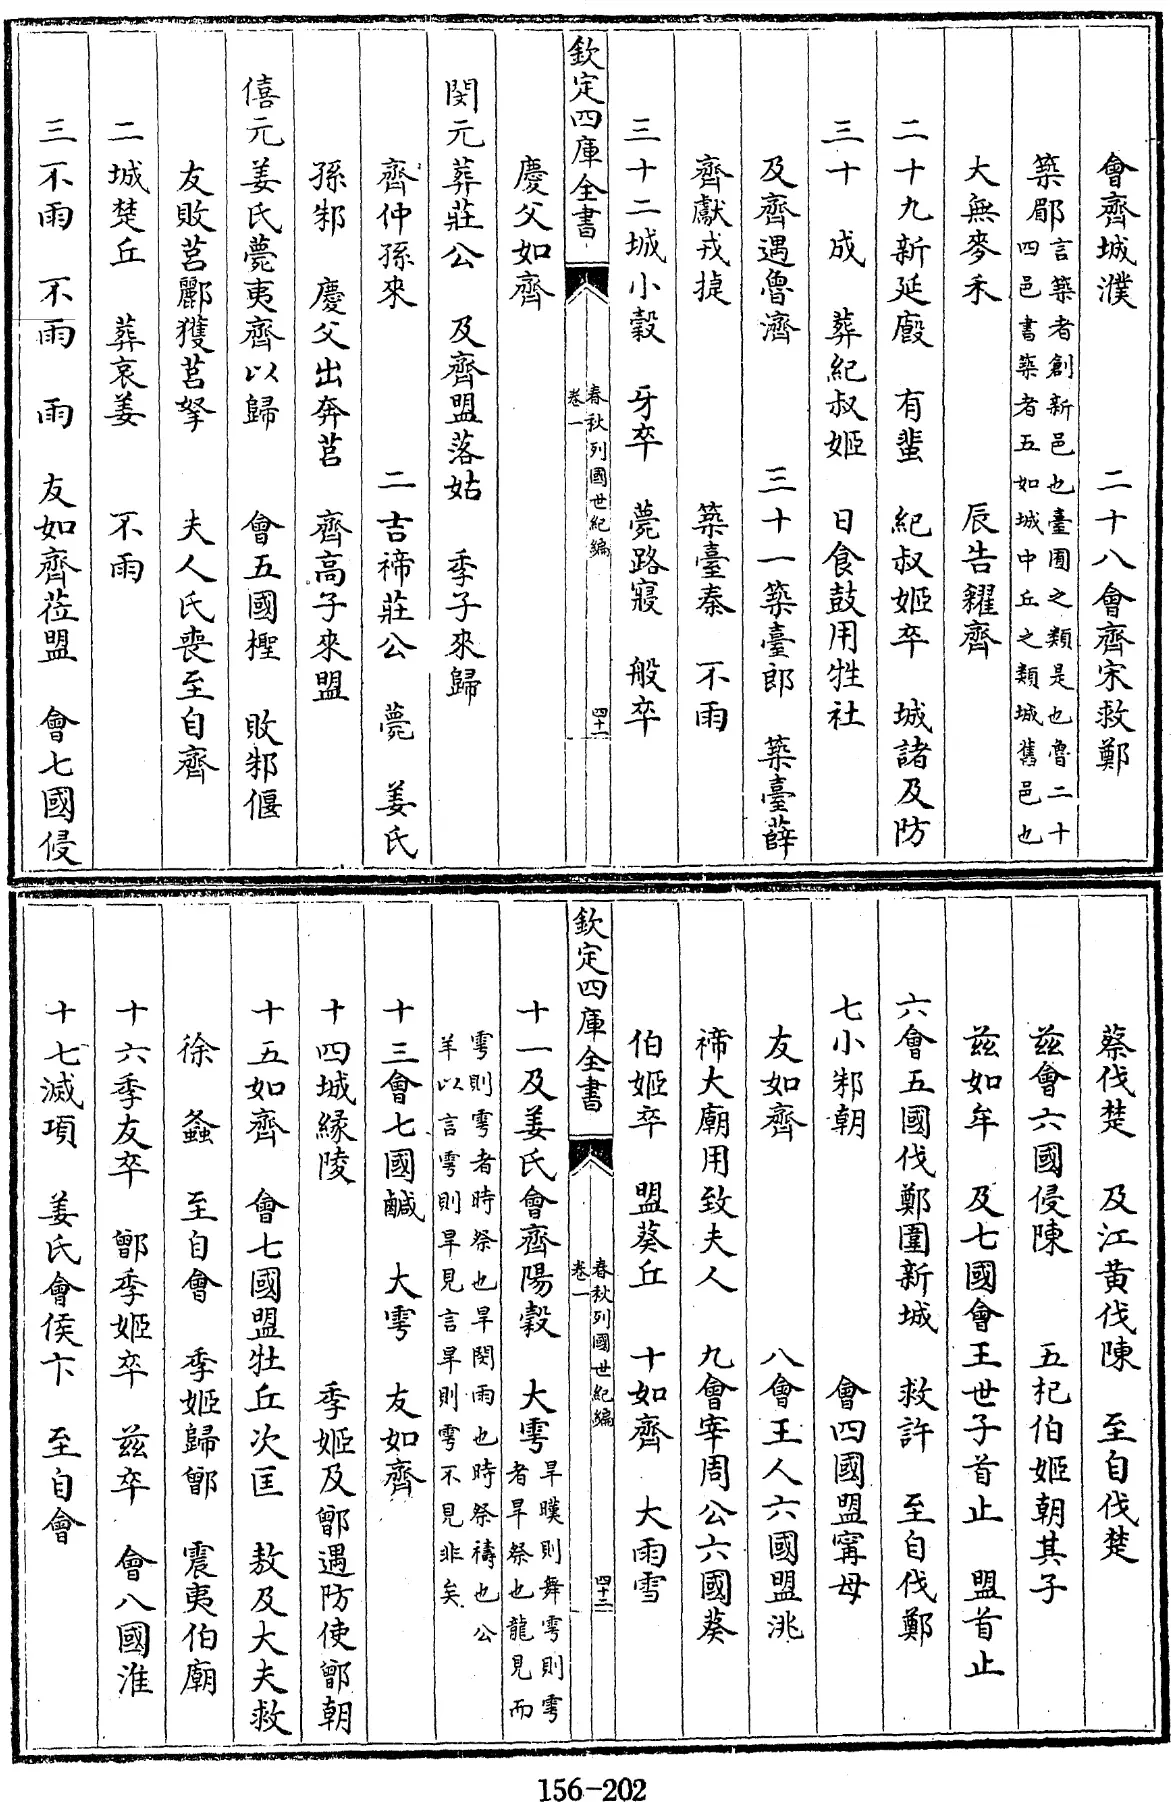 會齊城濮　二十八會齊宋救鄭
築郿言築者創新邑也臺囿之類是也魯二十
四邑書築者五如城中丘之類城舊邑也
大無麥禾　辰告糴齊
二十九新延廄　有蜚　紀叔姬卒　城諸及防
三十　成　葬紀叔姬　日食鼓用牲社
及齊遇魯濟　三十一築臺郎　築臺薛
齊獻戎捷　築臺秦　不雨
三十二城小穀　牙卒　薨路寢　般卒
欽定四庫全書　春秋列國世紀編　卷一　四十一
慶父如齊
閔元葬莊公　及齊盟落姑　季子來歸
齊仲孫來　二吉禘莊公　薨　姜氏
孫邾　慶父出奔莒　齊高子來盟
僖元姜氏薨夷齊以歸　會五國檉　敗邾偃
友敗莒酈獲莒挐　夫人氏喪至自齊
二城楚丘　葬哀姜　不雨
三不雨　不雨　雨　友如齊莅盟　會七國侵
蔡伐楚　及江黃伐陳　至自伐楚
茲會六國侵陳　五杞伯姬朝其子
茲如牟　及七國會王世子首止　盟首止
六會五國伐鄭圍新城　救許　至自伐鄭
七小邾朝　會四國盟寗母
友如齊　八會王人六國盟洮
禘大廟用致夫人　九會宰周公六國葵
伯姬卒　盟葵丘　十如齊　大雨雪
欽定四庫全書　春秋列國世紀編　卷一　四十二
十一及姜氏會齊陽穀　大雩旱暵則舞雩則雩
者旱祭也龍見而
雩則雩者時祭也旱閔雨也時祭禱也公
羊以言雩則旱見言旱則雩不見非矣
十三會七國鹹　大雩　友如齊
十四城緣陵　季姬及鄫遇防使鄫朝
十五如齊　會七國盟牡丘次匡　敖及大夫救
徐　螽　至自會　季姬歸鄫　震夷伯廟
十六季友卒　鄫季姬卒　茲卒　會八國淮
十七滅項　姜氏會侯卞　至自會
156-202